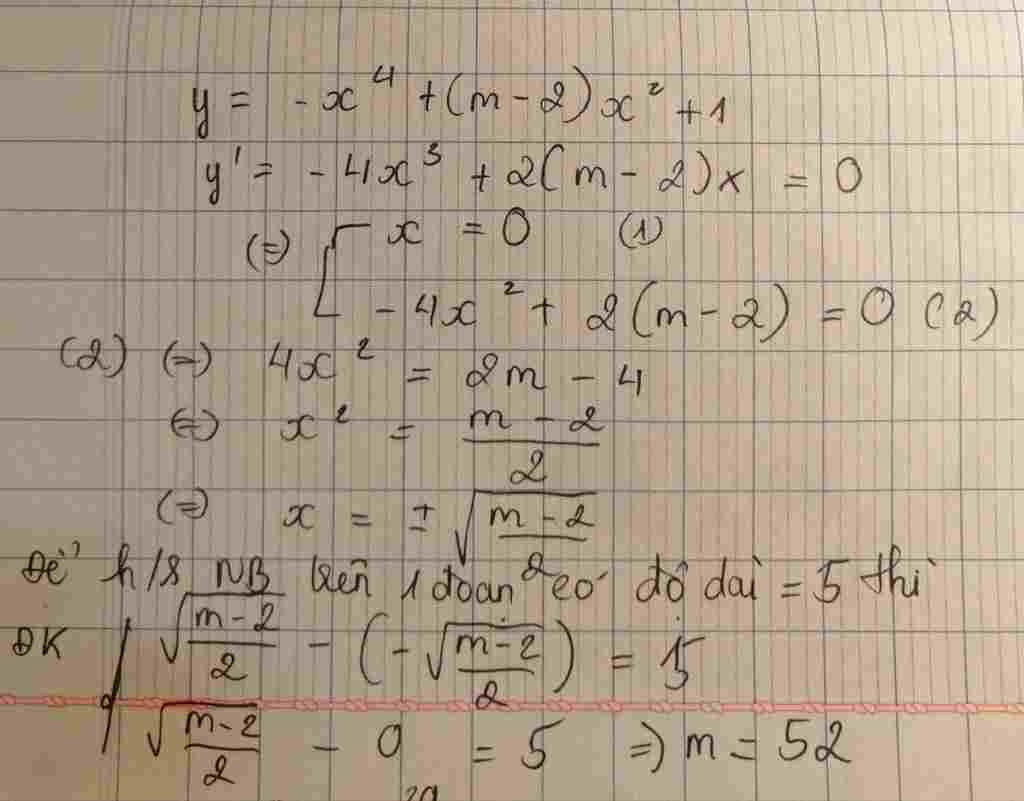 y = -x⁴ + (m - 2)x² + 1
y' = -4x³ + 2(m - 2)x = 0
(=) [ x = 0 (1)
-4x² + 2(m - 2) = 0 (2)
(2) (=) 4x² = 2m - 4
(=) x² = (m - 2)/2
(=) x = ± √((m - 2)/2)
Để h/s NB trên 1 đoạn có độ dài = 5 thì
ĐK √((m - 2)/2) - (-√((m - 2)/2)) = 5
√((m - 2)/2) - 0 = 5 => m = 52